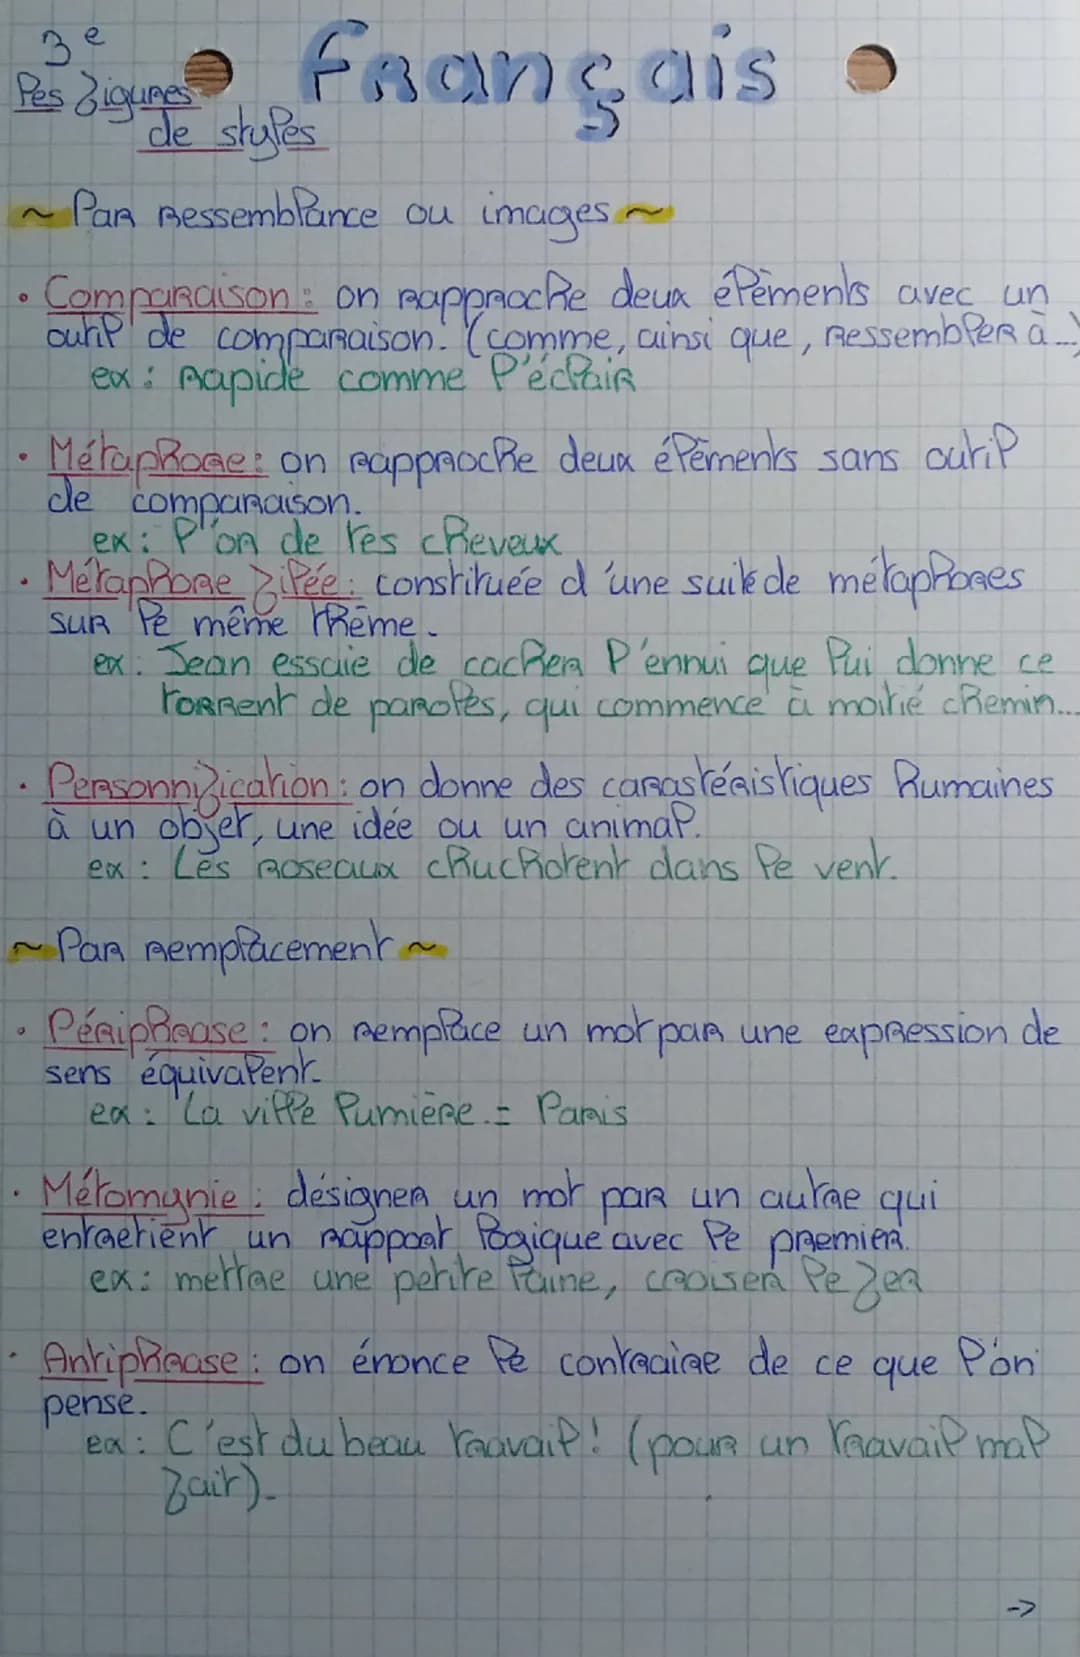 3e
Français
Les figures
de styles
~ Par Ressemblance ou images ~
• Comparaison : on rapproche deux éléments avec un
outil de comparaison. (comme, ainsi que, ressembler à...)
ex : Rapide comme l'éclair
• Métaphore : on rapproche deux éléments sans outil
de comparaison.
ex : l'or de tes cheveux
• Métaphore filée : constituée d'une suite de métaphores
sur le même thème.
ex : Jean essaie de cacher l'ennui que lui donne ce
torrent de paroles, qui commence à moitié chemin...
• Personnification : on donne des carastéristiques humaines
à un objet, une idée ou un animal.
ex : Les roseaux chuchotent dans le vent.
~ Par remplacement ~
• Périphrase : on remplace un mot par une expression de
sens équivalent.
ex : La ville lumière. = Paris
• Métomynie : désigner un mot par un autre qui
entretient un rapport logique avec le premier.
ex : mettre une petite laine, croiser le fer
• Antiphrase : on énonce le contraire de ce que l'on
pense.
ex : C'est du beau travail ! (pour un travail mal
fait).
->